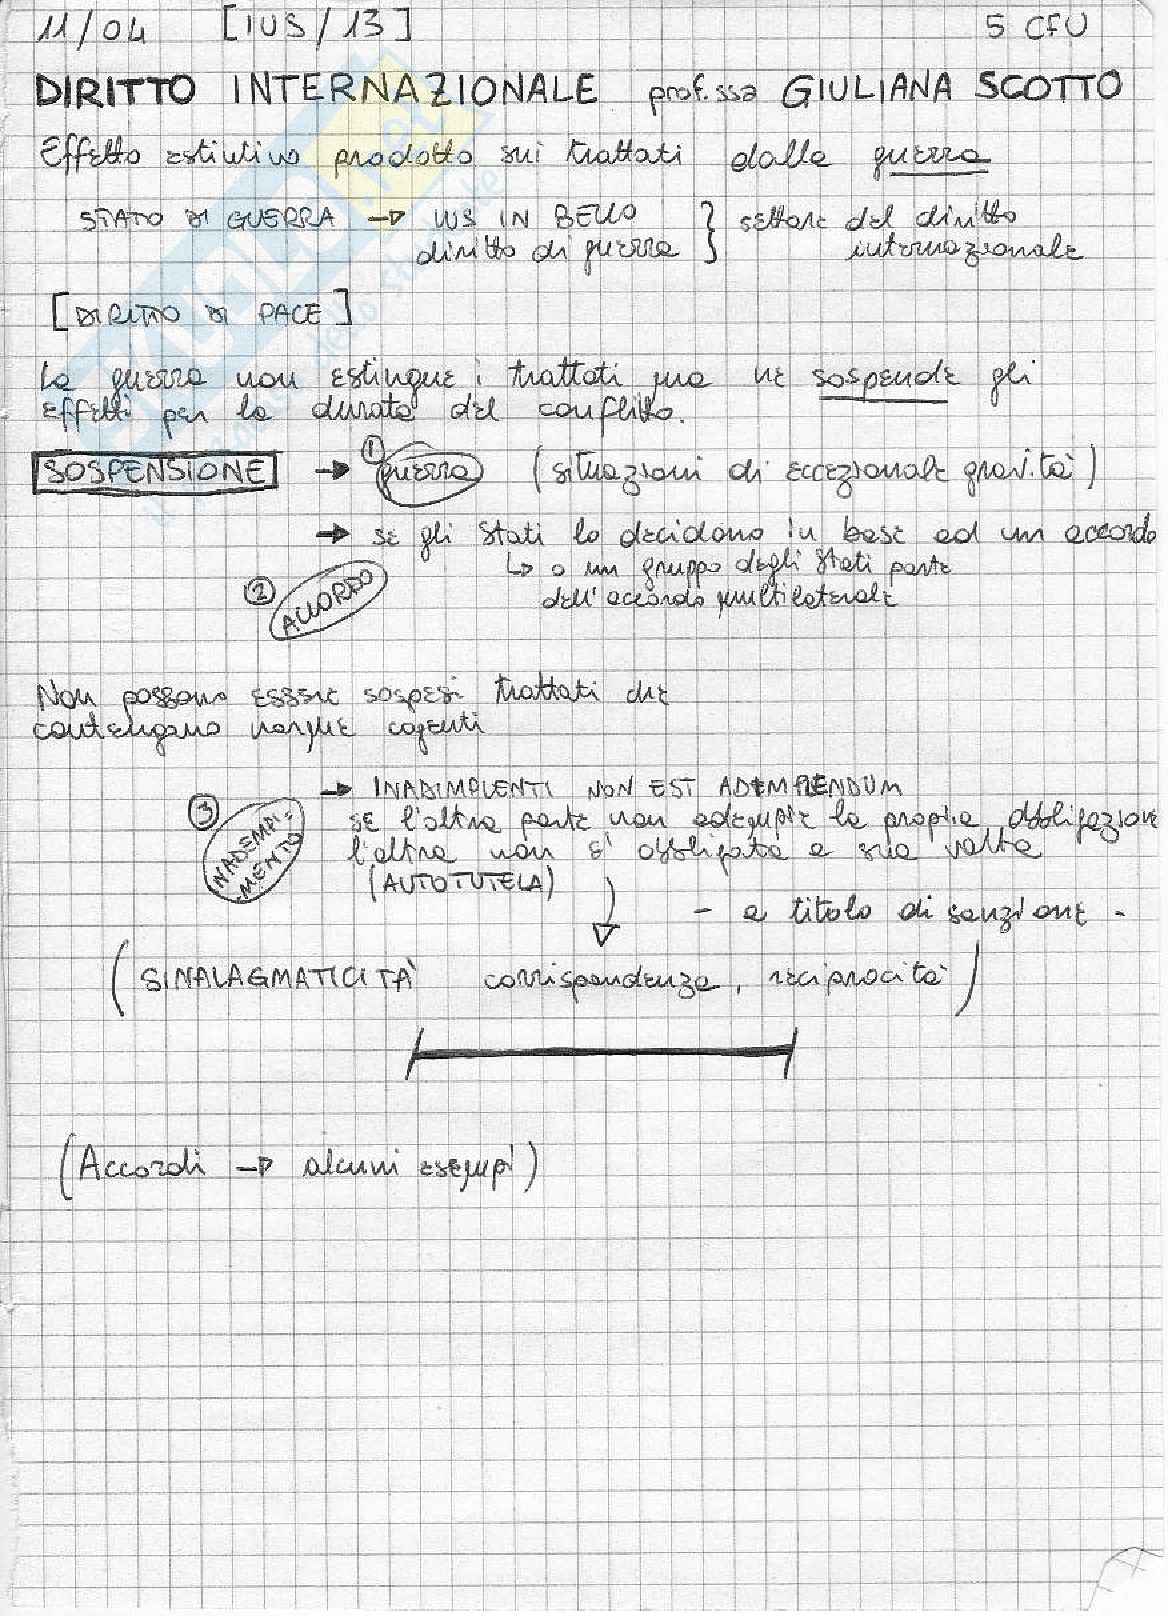 11/04 [IUS/13] 5 CFU
DIRITTO INTERNAZIONALE prof.ssa GIULIANA SCOTTO
Effetto estintivo prodotto sui trattati dalla guerra
STATO DI GUERRA → IUS IN BELLO } settore del diritto
diritto di guerra internazionale
[DIRITTO DI PACE]
La guerra non estingue i trattati ma ne sospende gli
effetti per la durata del conflitto.
SOSPENSIONE → ① guerra (situazioni di eccezionale gravità)
→ se gli Stati lo decidono in base ad un accordo
↳ o un gruppo degli Stati parte
② ACCORDO dell'accordo multilaterale
Non possono essere sospesi trattati che
contengano norme cogenti
→ INADIMPLENTI NON EST ADEMPLENDUM
③ INADEMPI-MENTO se l'altra parte non adempie la propria obbligazione
l'altra non è obbligata a sua volta
(AUTOTUTELA)
- a titolo di sanzione -
(SINALAGMATICITÀ corrispondenza, reciprocità)
(Accordi → alcuni esempi)